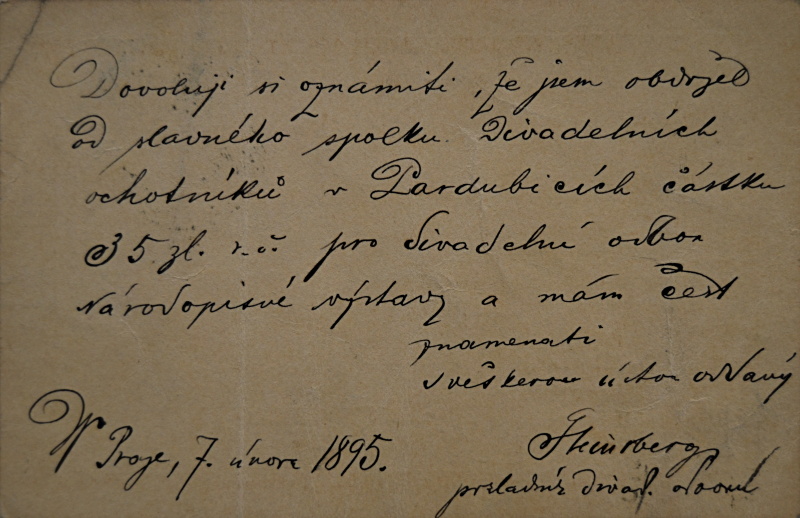 Dovoluji si oznámiti, že jsem obdržel
od slavného spolku Divadelních
ochotníků v Pardubicích částku
35 zl. r. č. pro divadelní odbor
Národopisné výstavy a mám čest
znamenati
s veškerou úctou oddaný
V Praze, 7. února 1895.
pokladník divad. odboru